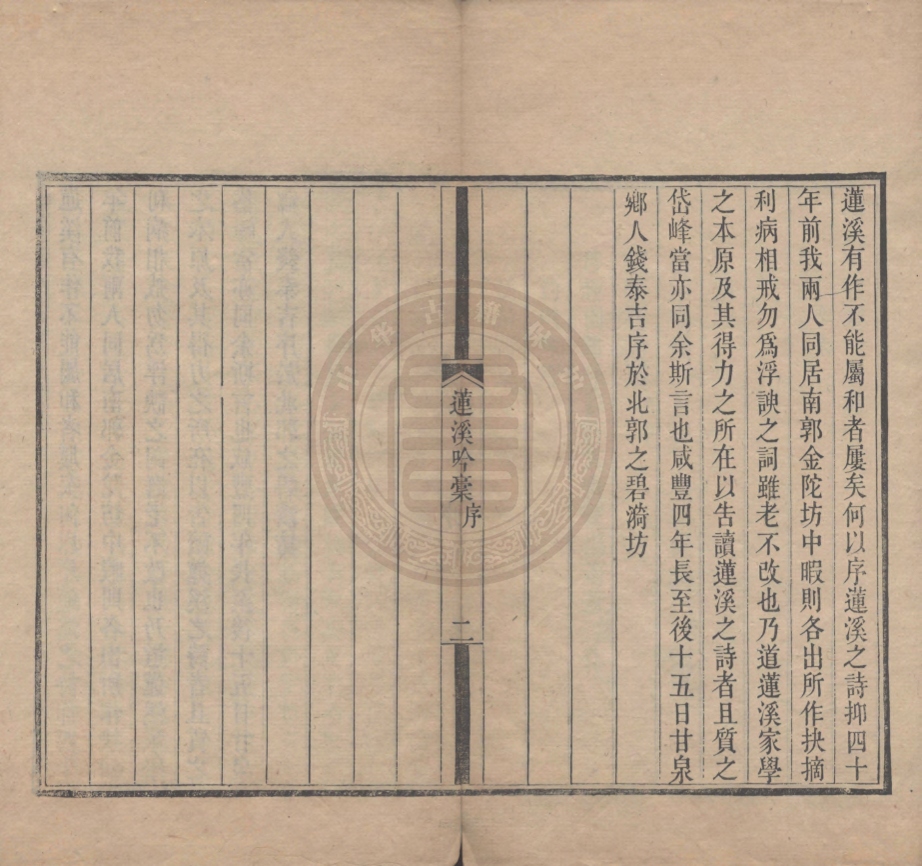 蓮溪有作不能屬和者屢矣何以序蓮溪之詩抑四十
年前我兩人同居南郭金陀坊中暇則各出所作抉摘
利病相戒勿爲浮諛之詞雖老不改也乃道蓮溪家學
之本原及其得力之所在以告讀蓮溪之詩者且質之
岱峰當亦同余斯言也咸豐四年長至後十五日甘泉
鄉人錢泰吉序於北郭之碧漪坊
蓮溪吟稾序
二